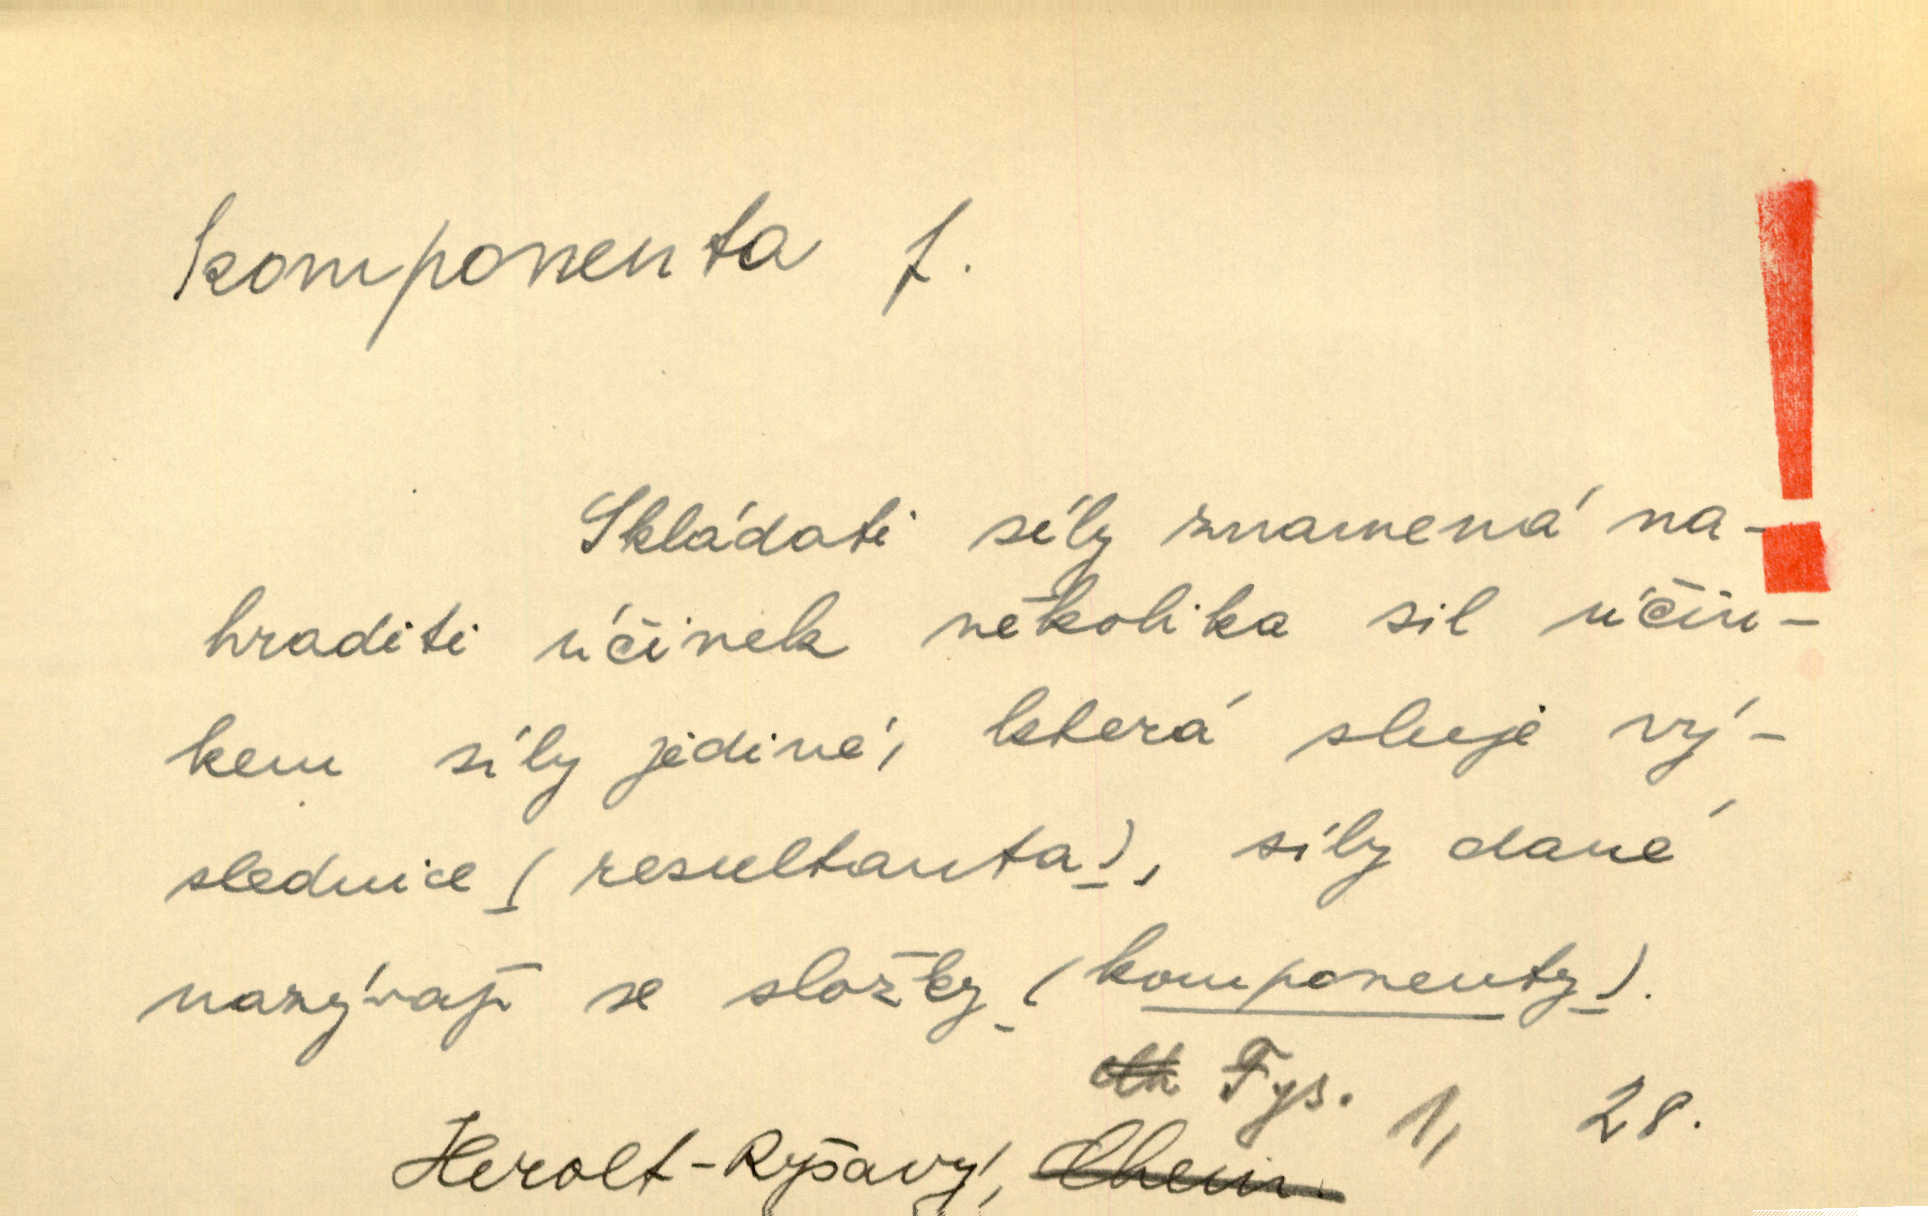 komponenta f.
Skládati síly znamená na-
hraditi účinek několika sil účin-
kem síly jediné, která sluje vý-
slednice (resultanta), síly dané
nazývají se složky (komponenty).
Fys. 1, 28.
Herolt-Ryšavý, Chem.